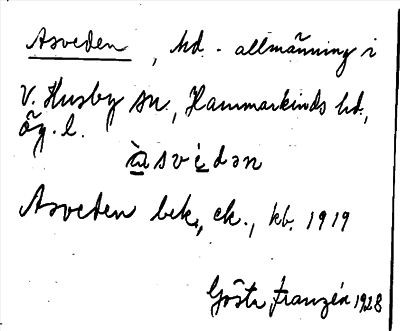 Asveden, hd. - allmänning i
V. Husby sn, Hammarkinds hd.,
Ög. l.
ὰsvèdən
Asveden bek., ek., kb. 1919
Gösta Franzén 1928